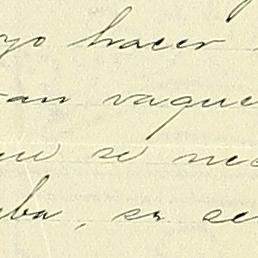 yo hacer
an vaque
ue se nec
ba, en